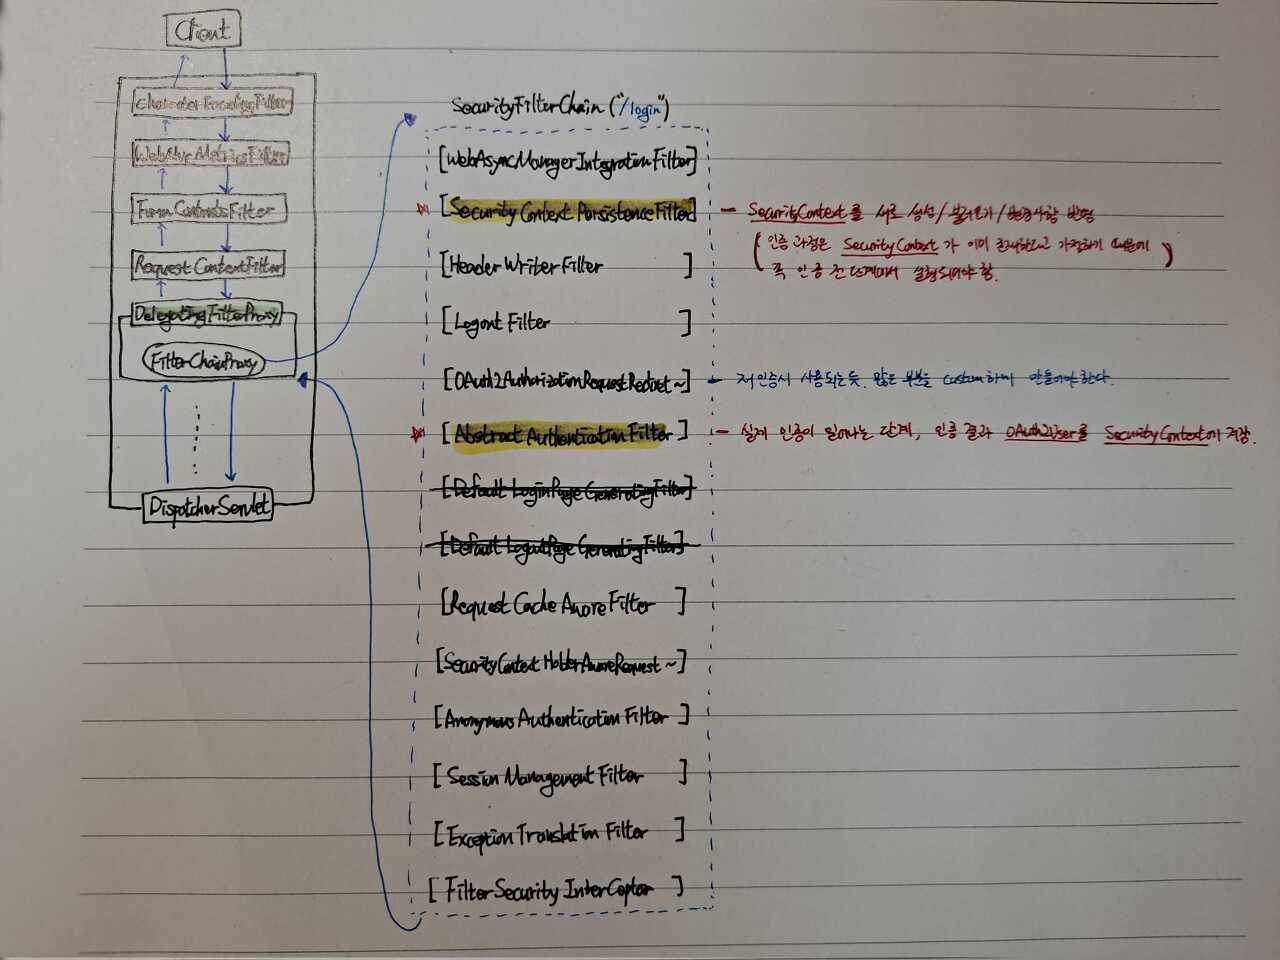 Client
Character Encoding Filter
WebAsyncMetricsFilter
Form Contents Filter
Request Context Filter
Delegating FilterProxy
FilterChainProxy
DispatcherServlet
SecurityFilterChain ("/login")
[WebAsyncManagerIntegrationFilter]
[Security Context Persistence Filter] - SecurityContext를 새로 생성/불러오기/변경사항 반영
(인증 과정은 SecurityContext가 이미 존재한다고 가정하기 때문에
즉 인증 전 단계에서 실행되어야 함.)
[Header Writer Filter]
[Logout Filter]
[OAuth2AuthorizationRequestRedirect~] - 재인증시 사용되는듯. 많은 부분을 custom하여 만들어야한다.
[Abstract Authentication Filter] - 실제 인증이 일어나는 단계, 인증 결과 OAuth2User를 SecurityContext에 저장.
[Default LoginPage GeneratingFilter]
[Default LogoutPage GeneratingFilter]
[Request Cache Aware Filter]
[SecurityContext HolderAwareRequest ~]
[Anonymous Authentication Filter]
[Session Management Filter]
[Exception Translation Filter]
[Filter Security InterCeptor]